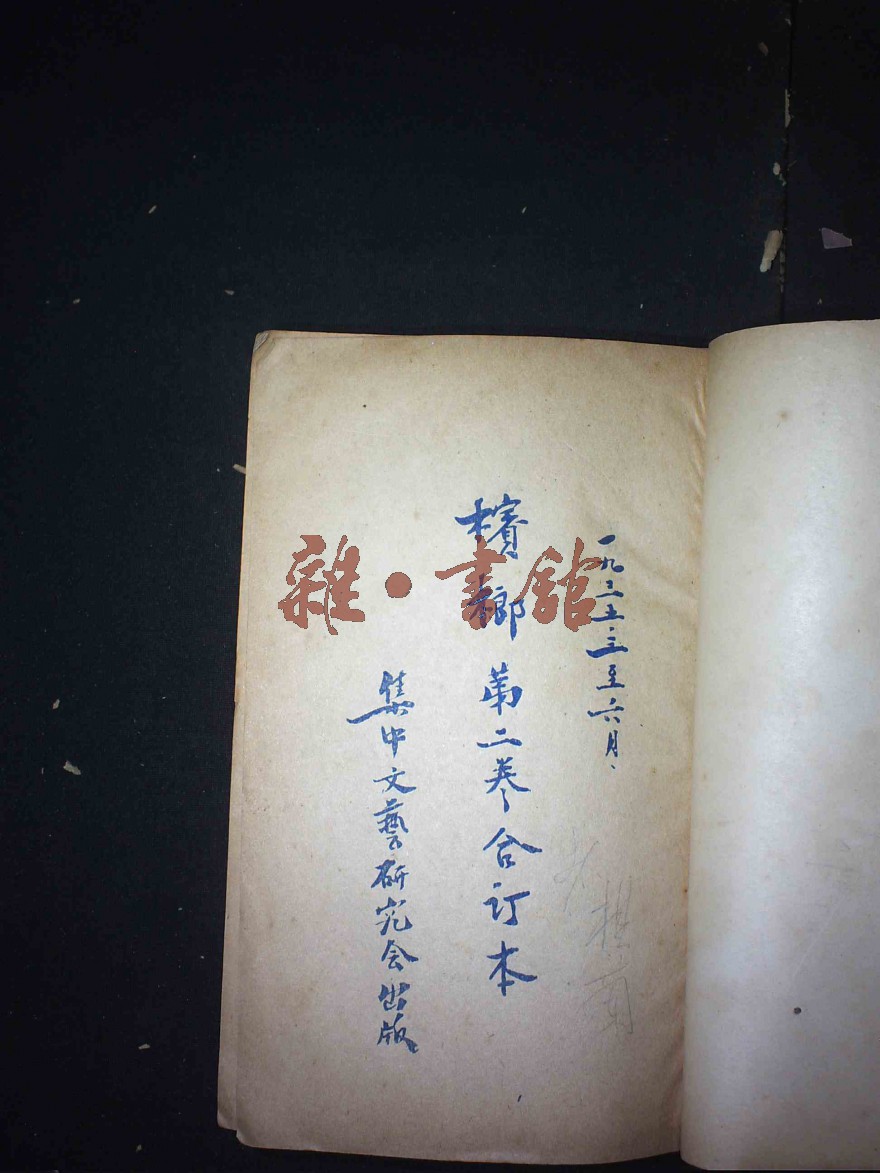 一九三五.三至六月.
檳榔 第二卷合订本
集中文藝研究会出版
雜·書館